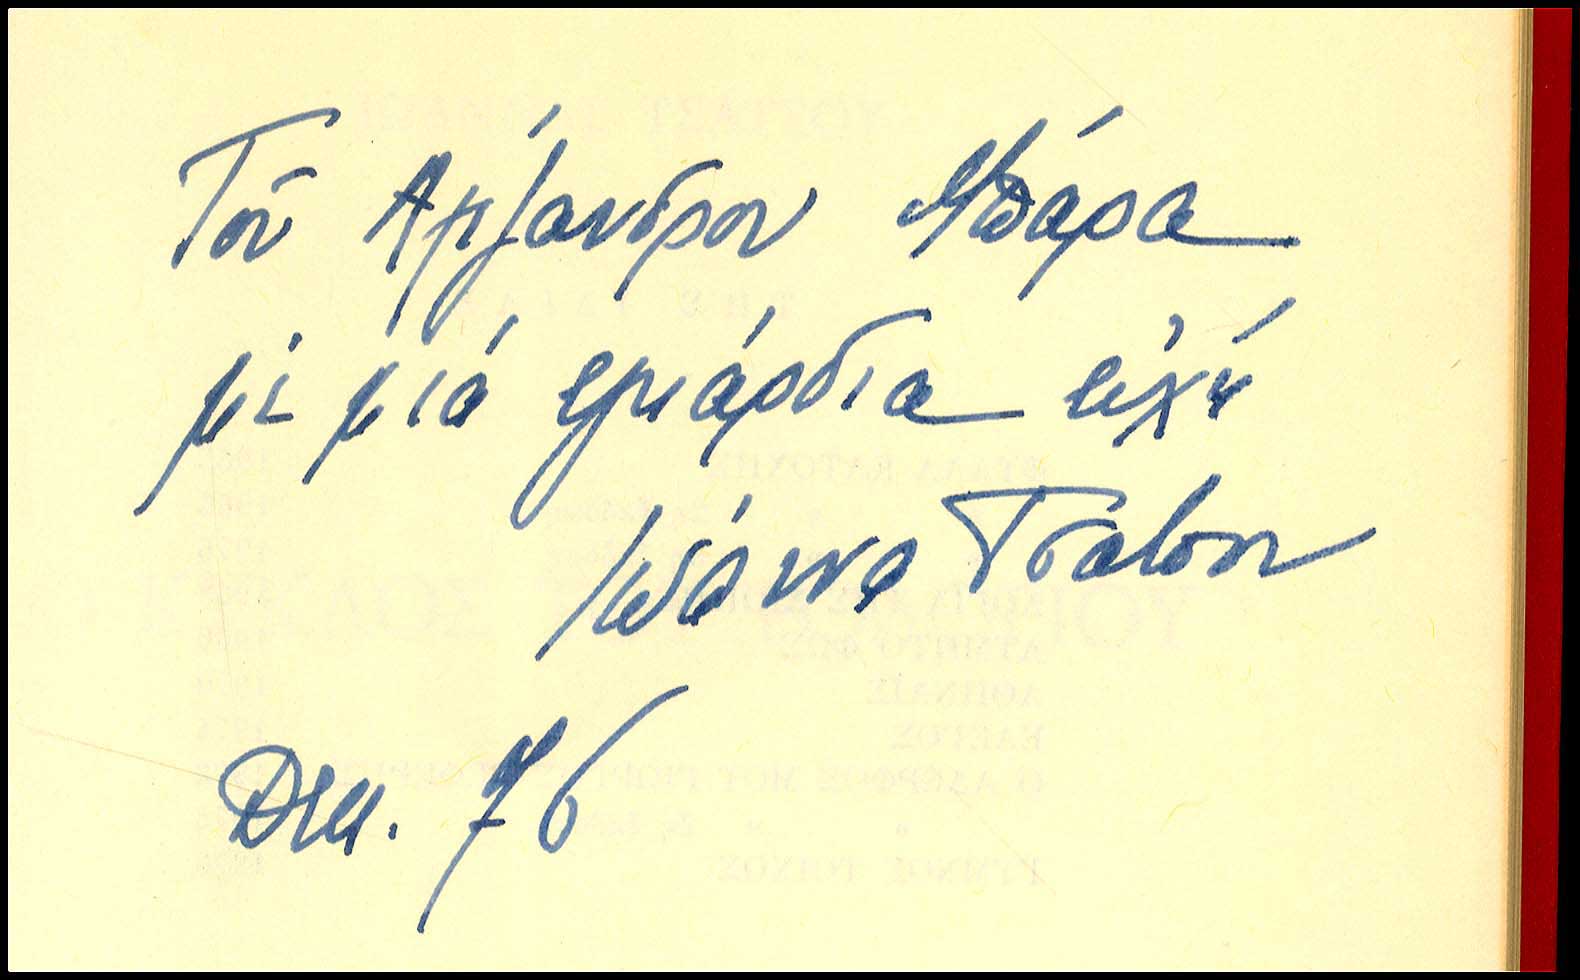 Τοῦ Αλέξανδρου Μπάρα
μέ μιά εγκάρδια εὐχή
Ιωάννα Τσάτσου
Δεκ. 76